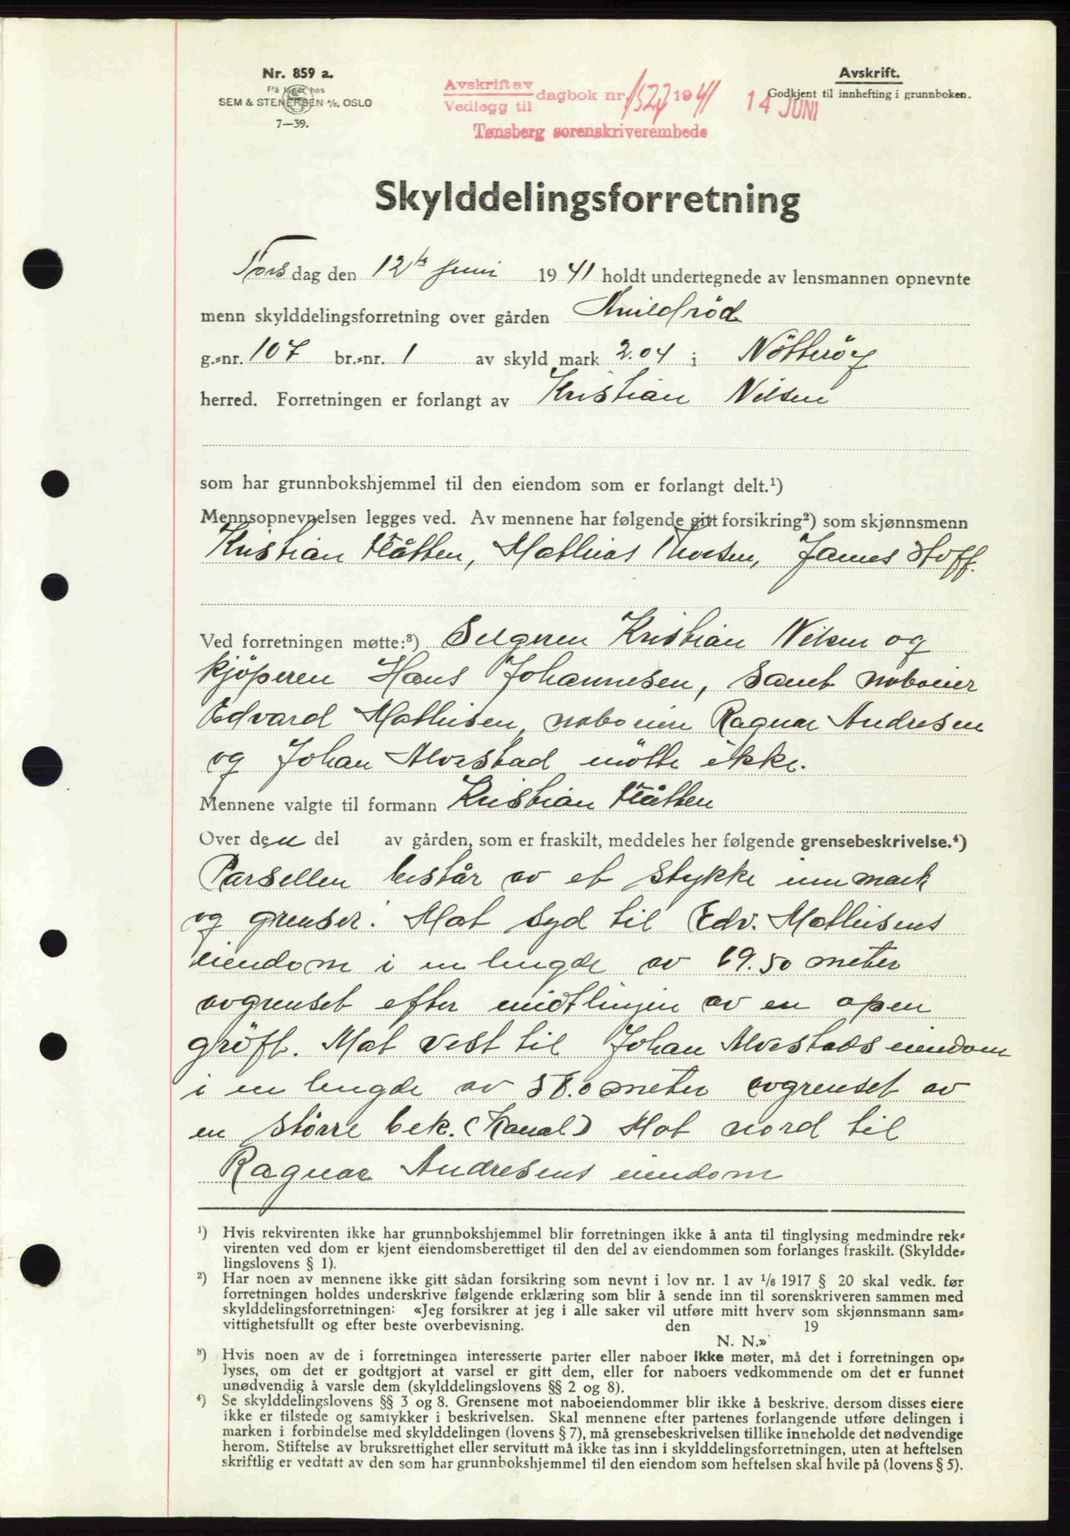 Nr. 859 a.
På lager hos
SEM & STENERSEN A/S, OSLO
7—39.
Avskrift av
Vedlegg til
dagbok nr. 1522 1941
Tønsberg sorenskriverembede
14 JUNI
Avskrift.
Godkjent til innhefting i grunnboken.
Skylddelingsforretning
Torsdag den 12te Juni 1941 holdt undertegnede av lensmannen opnevnte
menn skylddelingsforretning over gården Knildröd
g.-nr. 107 br.-nr. 1 av skyld mark 2.04 i Nötteröy
herred. Forretningen er forlangt av Kristian Nilsen
som har grunnbokshjemmel til den eiendom som er forlangt delt.¹)
Mennsopnevnelsen legges ved. Av mennene har følgende gitt forsikring²) som skjønnsmenn
Kristian Flåtten, Mathias Thorsen, James Hoff.
Ved forretningen møtte:³) Selgeren Kristian Nilsen og
kjöperen Hans Johannesen, samt naboeier
Edvard Mathisen, naboeier Ragnar Andresen
og Johan Alvestad mötte ikke.
Mennene valgte til formann Kristian Flåtten
Over den del av gården, som er fraskilt, meddeles her følgende grensebeskrivelse.⁴)
Parsellen består av et stykke innmark
og grenser: Mot Syd til Edv. Mathisens
eiendom i en lengde av 69.50 meter
avgrenset efter midtlinjen av en open
gröft. Mot vest til Johan Alvestads eiendom
i en lengde av 58.0 meter avgrenset av
en större bek. (Kanal) Mot nord til
Ragnar Andresens eiendom
¹) Hvis rekvirenten ikke har grunnbokshjemmel blir forretningen ikke å anta til tinglysing medmindre rek-
virenten ved dom er kjent eiendomsberettiget til den del av eiendommen som forlanges fraskilt. (Skyldde-
lingslovens § 1).
²) Har noen av mennene ikke gitt sådan forsikring som nevnt i lov nr. 1 av 1/6 1917 § 20 skal vedk. før
forretningen holdes underskrive følgende erklæring som blir å sende inn til sorenskriveren sammen med
skylddelingsforretningen: «Jeg forsikrer at jeg i alle saker vil utføre mitt hverv som skjønnsmann sam-
vittighetsfullt og efter beste overbevisning. den 19
N. N.»
³) Hvis noen av de i forretningen interesserte parter eller naboer ikke møter, må det i forretningen op-
lyses, om det er godtgjort at varsel er gitt dem, eller for naboers vedkommende om det er funnet
unødvendig å varsle dem (skylddelingslovens §§ 2 og 8).
⁴) Se skylddelingslovens §§ 3 og 8. Grensene mot naboeiendommer blir ikke å beskrive, dersom disses eiere
ikke er tilstede og samtykker i beskrivelsen. Skal mennene efter partenes forlangende utføre delingen i
marken i forbindelse med skylddelingen (lovens § 7), må grensebeskrivelsen tillike inneholde det nødvendige
herom. Stiftelse av bruksrettighet eller servitutt må ikke tas inn i skylddelingsforretningen, uten at heftelsen
skriftlig er vedtatt av den som har grunnbokshjemmel til den eiendom som heftelsen skal hvile på (lovens § 5).